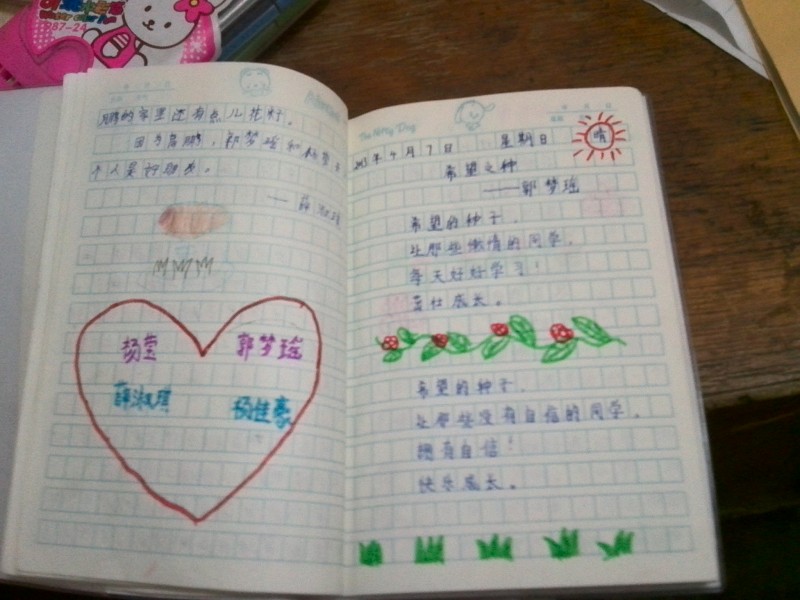 87-24
鹏的家里还有点儿花籽。
个人是
杨莹
郭梦瑶
薛淑琪
杨佳豪
The Natty Dog
2013年4月7日 星期日 晴
希望之种
——郭梦瑶
希望的种子,
让那些懒惰的同学,
每天好好学习!
茁壮成长。
希望的种子,
让那些没有自信的同学,
拥有自信!
快乐成长。